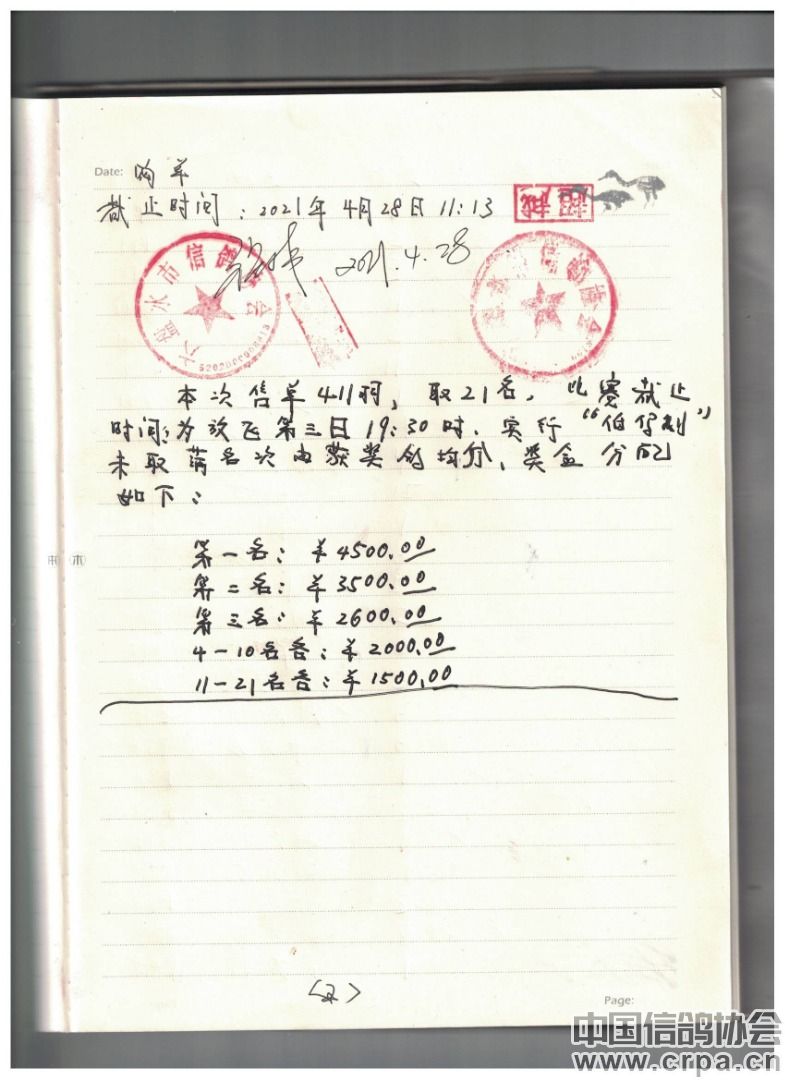 Date: 购单
截止时间：2021年4月28日11:13
六盘水市信鸽协会
2021.4.28
本次售单411羽，取21名，比赛截止
时间：为放飞第三日19:30时，实行“伯马制”
未取满名次由获奖鸽均分，奖金分配
如下：
第一名：¥4500.00
第二名：¥3500.00
第三名：¥2600.00
4-10名各：¥2000.00
11-21名各：¥1500.00
<2>
Page:
中国信鸽协会
www.crpa.cn